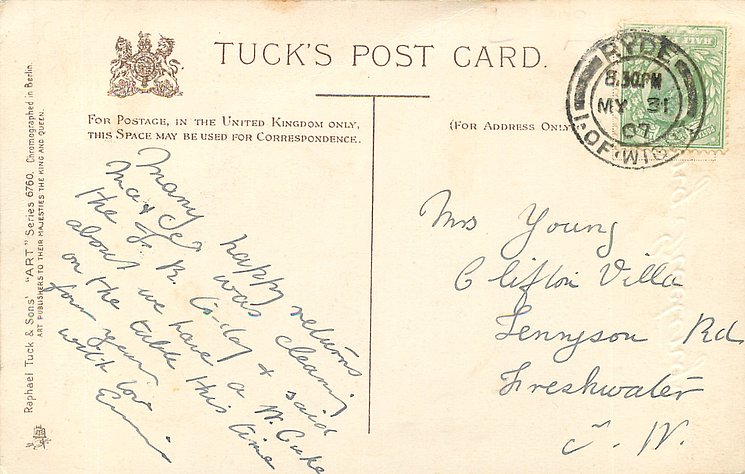 TUCK'S POST CARD.
FOR POSTAGE, IN THE UNITED KINGDOM ONLY,
THIS SPACE MAY BE USED FOR CORRESPONDENCE.
(FOR ADDRESS ONLY
RYDE
8.30PM
MY 31
07
I.OF.WIGHT
HALF
Raphael Tuck & Sons' "ART" Series 6760. Chromographed in Berlin.
ART PUBLISHERS TO THEIR MAJESTIES THE KING AND QUEEN.
Many happy returns
Ma & was cleaning
the F. R. to-day & said
about we have a W. Cake
on the table this time
four years
with love
Ernie
Mrs Young
Clifton Villa
Tennyson Rd
Freshwater
I. W.